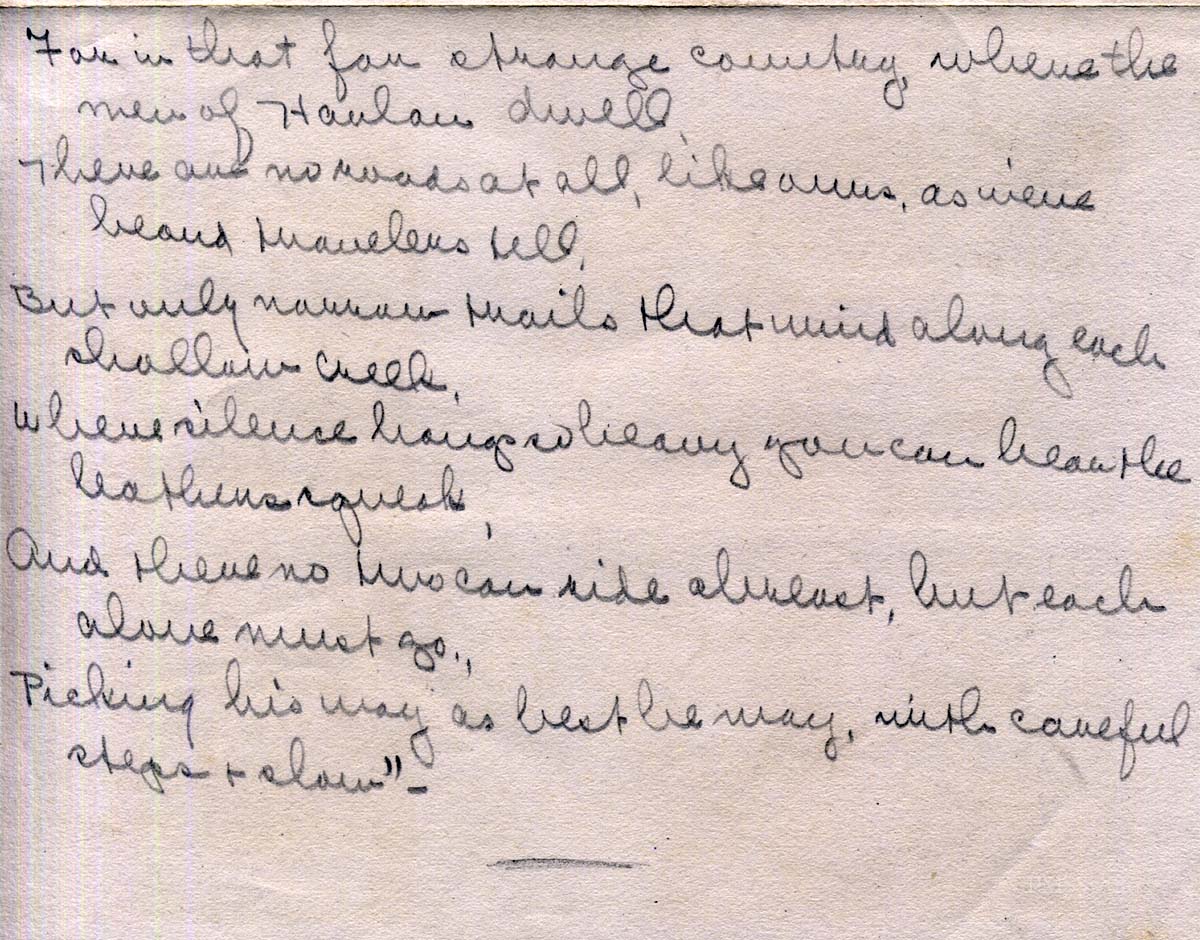 For in that far strange country, where the
men of Harlan dwell,
There are no roads at all, like ours, as we've
heard travelers tell,
But only narrow trails that wind along each
shallow creek,
Where silence hangs so heavy you can hear the
leathers squeak,
And there no two can ride abreast, but each
alone must go.,
Picking his way as best he may, with careful
steps + slow" -